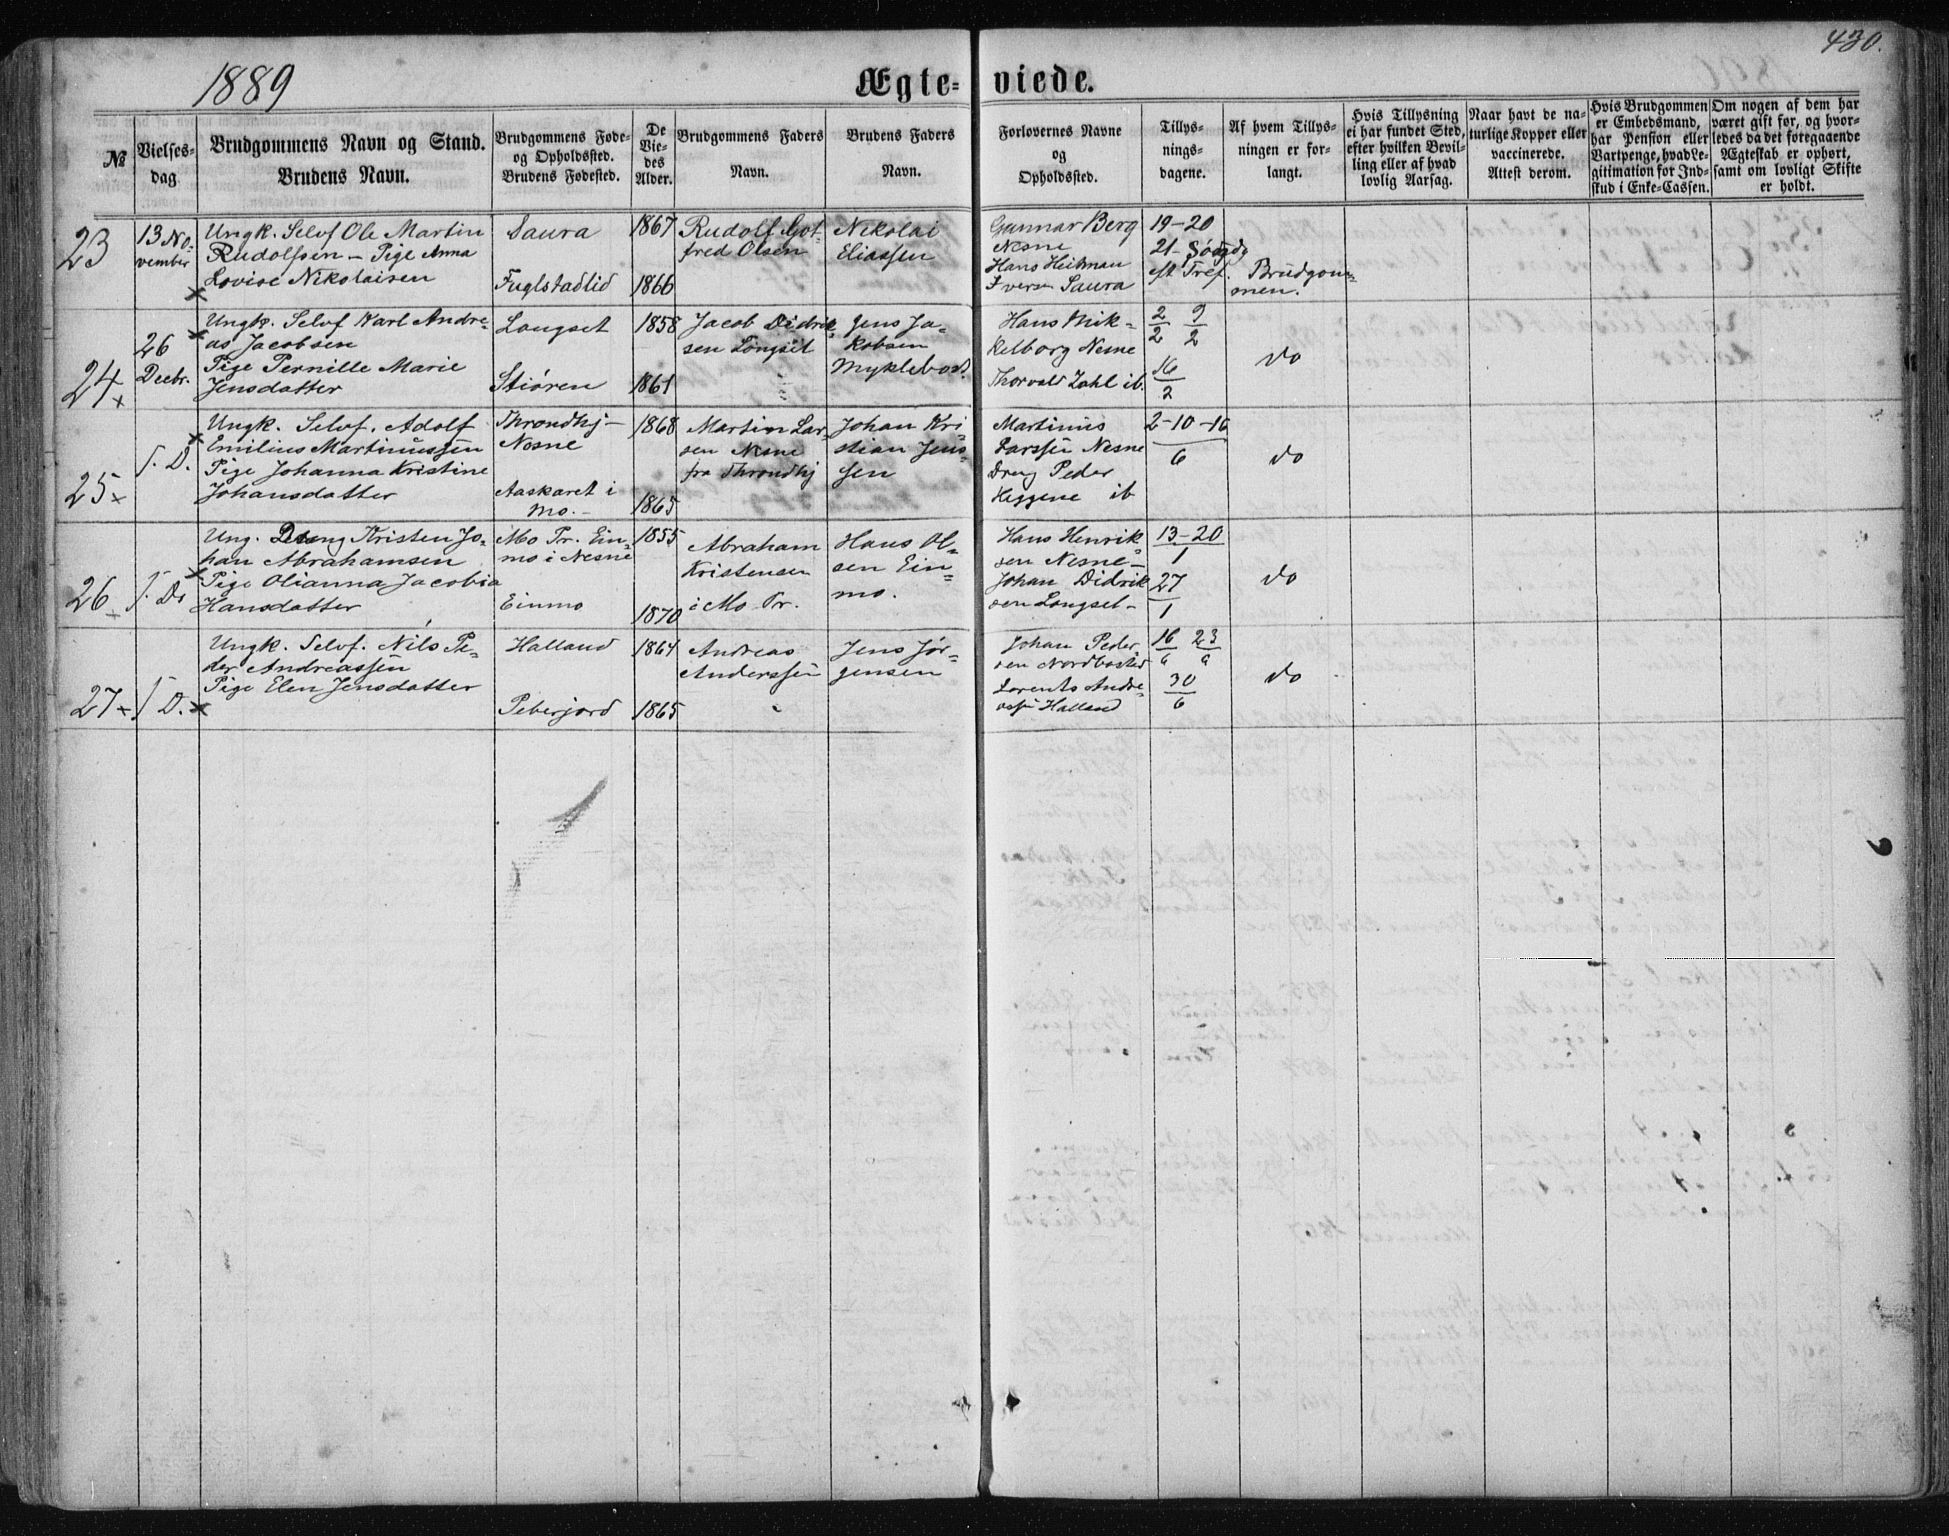 430.
1889
Ægte-viede.
№
Vielses-
dag.
Brudgommens Navn og Stand.
Brudens Navn.
Brudgommens Føde-
og Opholdssted.
Brudens Fødested.
De
Vie-
des
Alder.
Brudgommens Faders
Navn.
Brudens Faders
Navn.
Forlovernes Navne
og
Opholdssted.
Tillys-
nings-
dagene.
Af hvem Tillys-
ningen er for-
langt.
Hvis Tillysning
ei har fundet Sted,
efter hvilken Bevil-
ling eller af hvad
lovlig Aarsag.
Naar havt de na-
turlige Kopper eller
vaccinerede.
Attest derom.
Hvis Brudgommen
er Embedsmand,
har Pension eller
Vartpenge, hvad Le-
gitimation for Ind-
skud i Enke-Cassen.
Om nogen af dem har
været gift før, og hvor-
ledes da det foregaaende
Ægteskab er ophørt,
samt om lovligt Skifte
er holdt.
23
13 No-
vember
Ungk. Selvf Ole Martin
Rudolfsen - Pige Anna
Lovise Nikolaisen
Saura
Fuglstadlid
1867
1866
Rudolf Got-
fred Olsen
Nikolai
Eliassen
Gunnar Berg
Nesne
Hans Heitman
Iversen Saura
19-20
21- Søndg
eft Tref.
Brudgom-
men.
24
26
Decbr.
Ungk. Selvf Karl Andre-
as Jacobsen
Pige Pernille Marie
Jensdatter
Longset
Stiören
1858
1861
Jacob Didrik-
sen Longset
Jens Ja-
kobsen
Myklebost
Hans Mik-
kelborg Nesne
Thorvald Zahl ib.
2/2 9/2
16/2
do
25
S. D.
Ungk. Selvf. Adolf
Emilius Martinussen
Pige Johanna Kristine
Johansdatter
Throndhj-
Nesne
Aaskaret i
Mo.-
1868
1865
Martin Lar-
sen Nesne
fra Throndhj
Johan Kri-
stian Jens-
sen
Martinus
Larssen Nesne
Dreng Peder
Heggene ib
2-10-16
6
do
26
S. D.
Ung. Dreng Kristen Jo-
han Abrahamsen
Pige Olianna Jacobia
Hansdatter
Mo Pr. Ein-
mo i Nesne
Einmo
1855
1870
Abraham
Kristensen
i Mo Pr.
Hans Ol-
sen Ein-
mo.
Hans Henrik-
sen Nesne-
Johan Didrik
sen Longset-
13-20
1
27
1
do
27
S. D.
Ungk. Selvf. Nils Pe-
der Andreassen
Pige Elen Jensdatter
Halland
Peberjord
1864
1865
Andreas
Anderssen
Jens Jør-
gensen
Johan Peder-
sen Nordbostad
Lorents Andre-
assen Halland
16/6 23/6
30/6
do